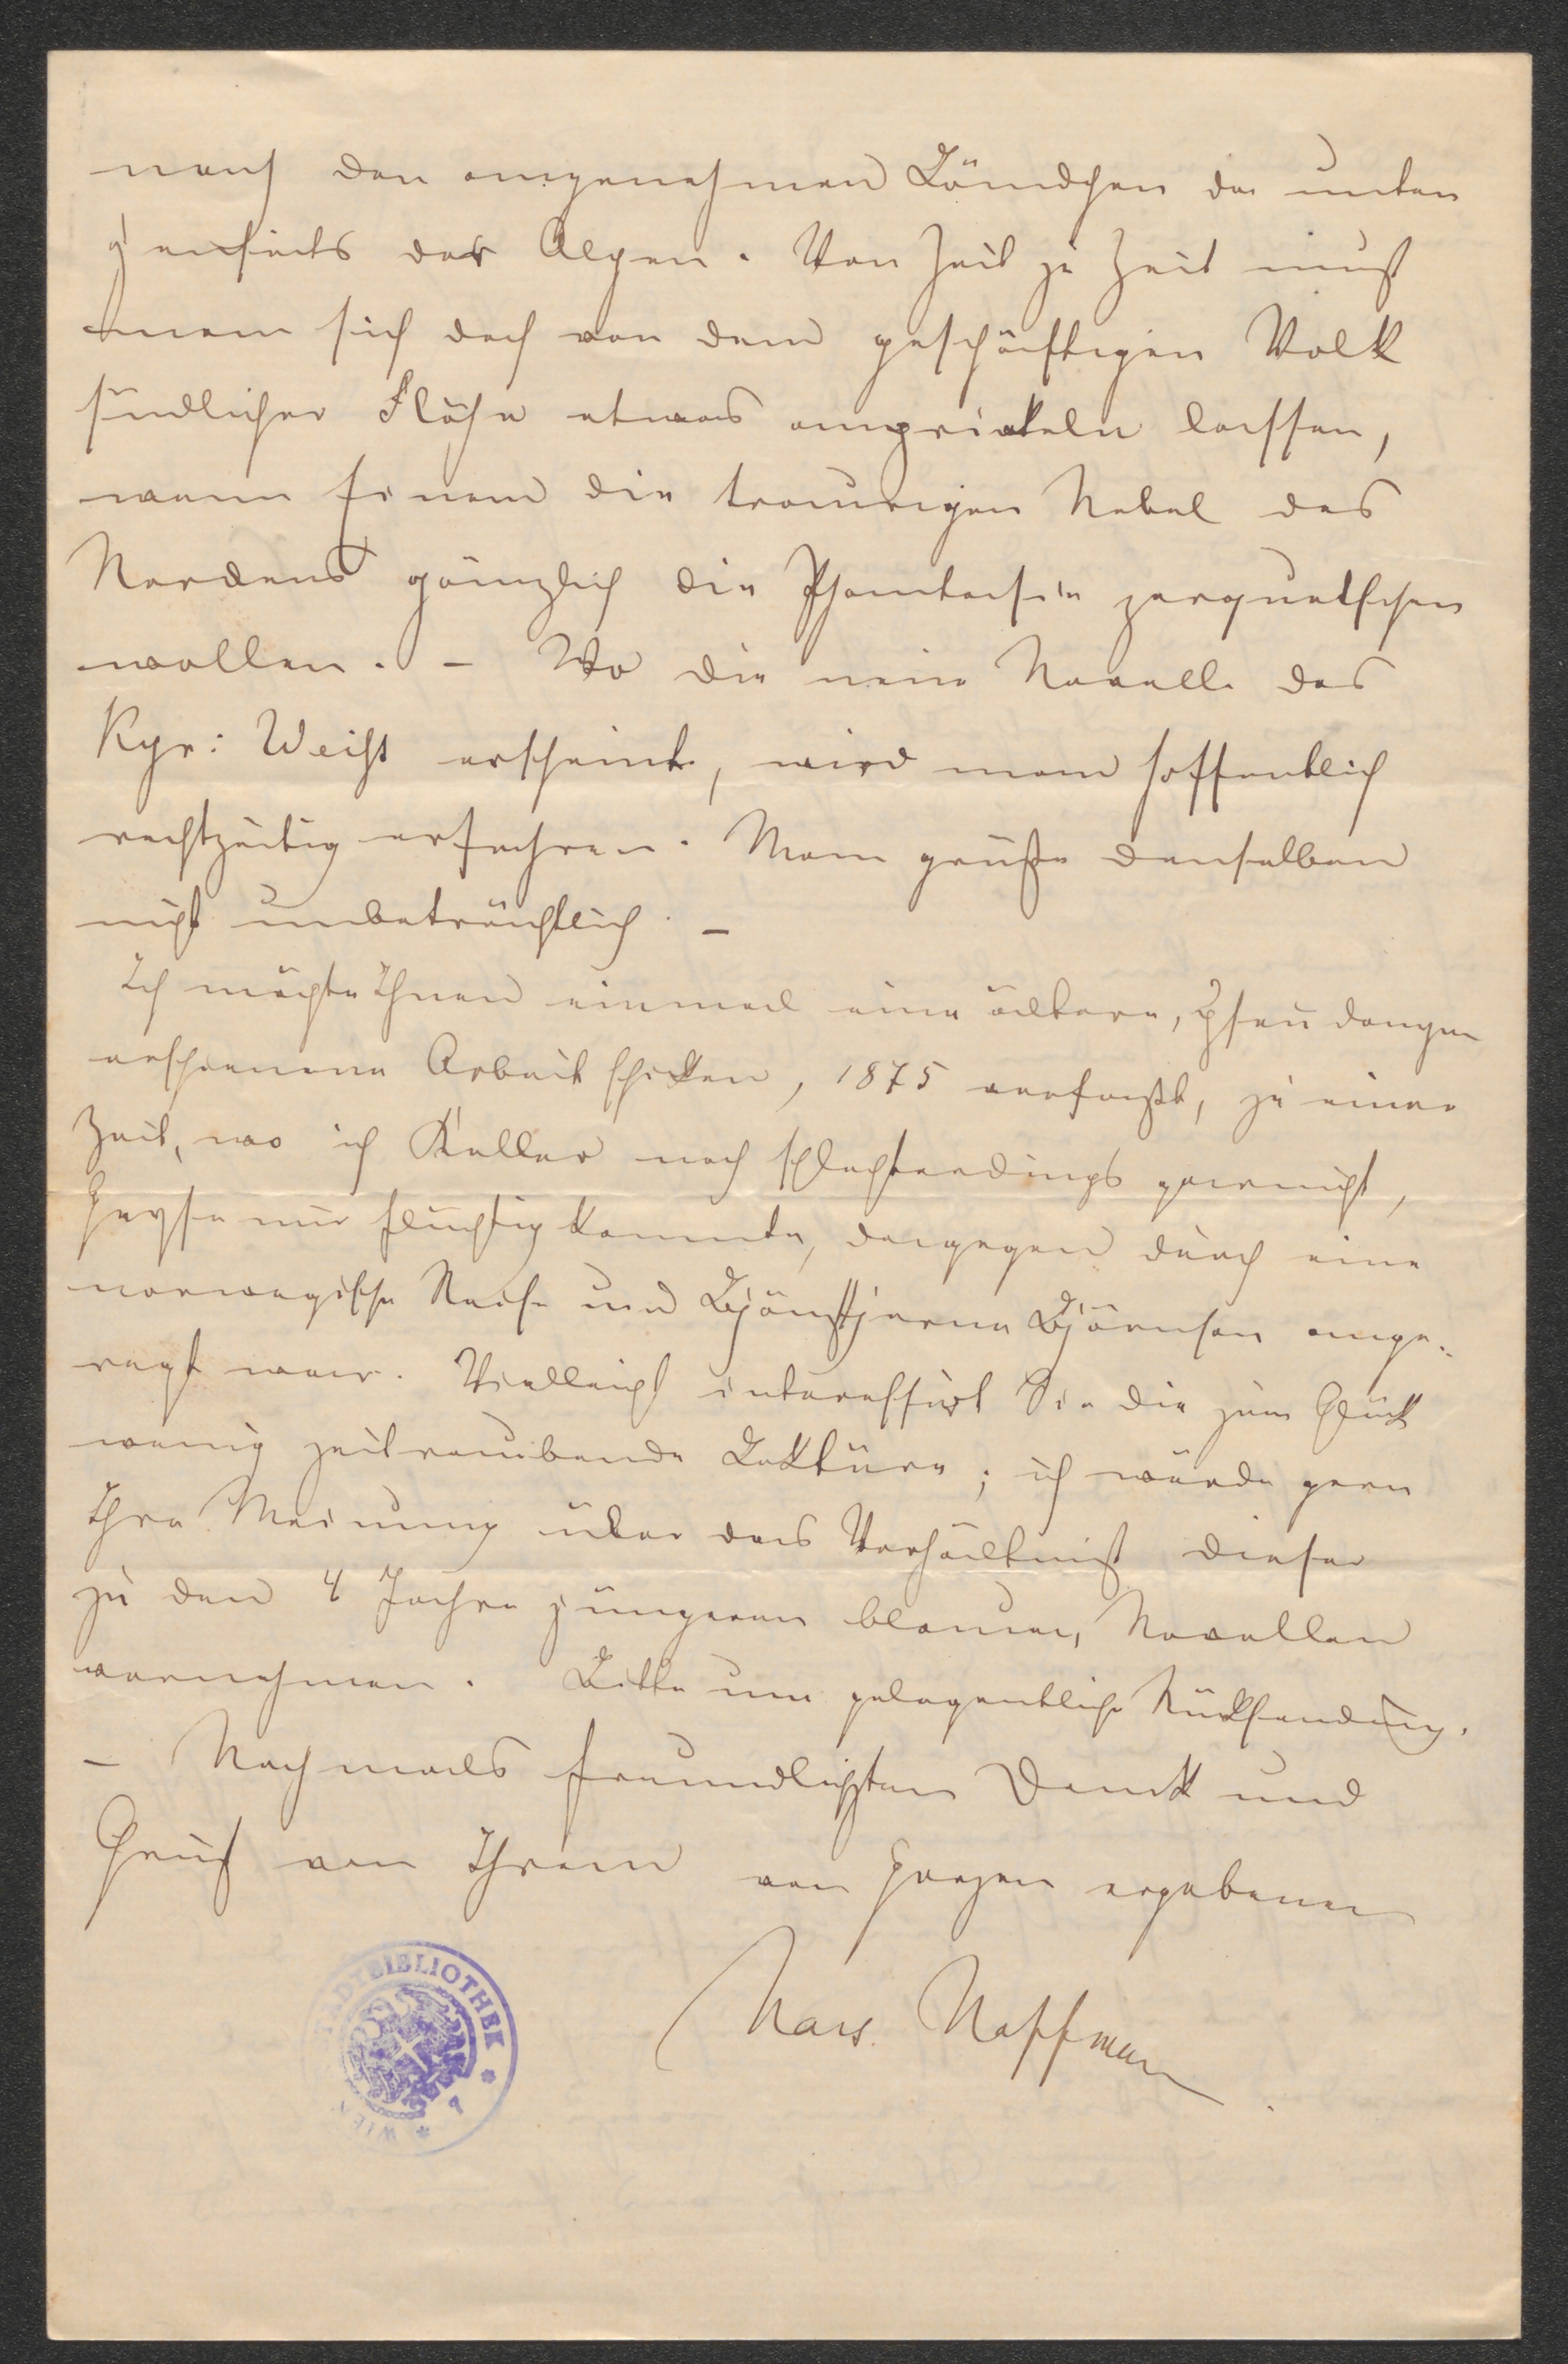 nach dem angenehmen Ländchen da unten
jenseits der Alpen. Von Zeit zu Zeit muß
man sich doch von dem geschäftigen Volk
südlicher Flöhe etwas anprickeln lassen,
wenn Einem die traurigen Nebel des
Nordens gänzlich die Phantasie zerquetschen
wollen. – Wo die neue Novelle des
Kgr: Weiht erscheint, wird man hoffentlich
rechtzeitig erfahren. Man grüße denselben
nicht unbeträchtlich. –
Ich möchte Ihnen einmal eine ältere, pseudonym
erschienene Arbeit schicken, 1875 verfaßt, zu einer
Zeit, wo ich Keller noch schlechterdings garnicht,
Heyse nur flüchtig kannte, dagegen durch eine
norwegische Reise und Björnstjerne Björnson ange-
regt war. Vielleicht interessirt Sie die zum Glück
wenig zeitraubende Lektüre; ich würde gern
Ihre Meinung über das Verhältniß dieser
zu den 4 Jahre jüngeren blauen, Novellen
vernehmen. Bitte um gelegentliche Rücksendung.
– Nochmals freundlichsten Dank und
Gruß von Ihrem von Herzen ergebenen
Hans Hoffmann
STADTBIBLIOTHEK * WIEN *